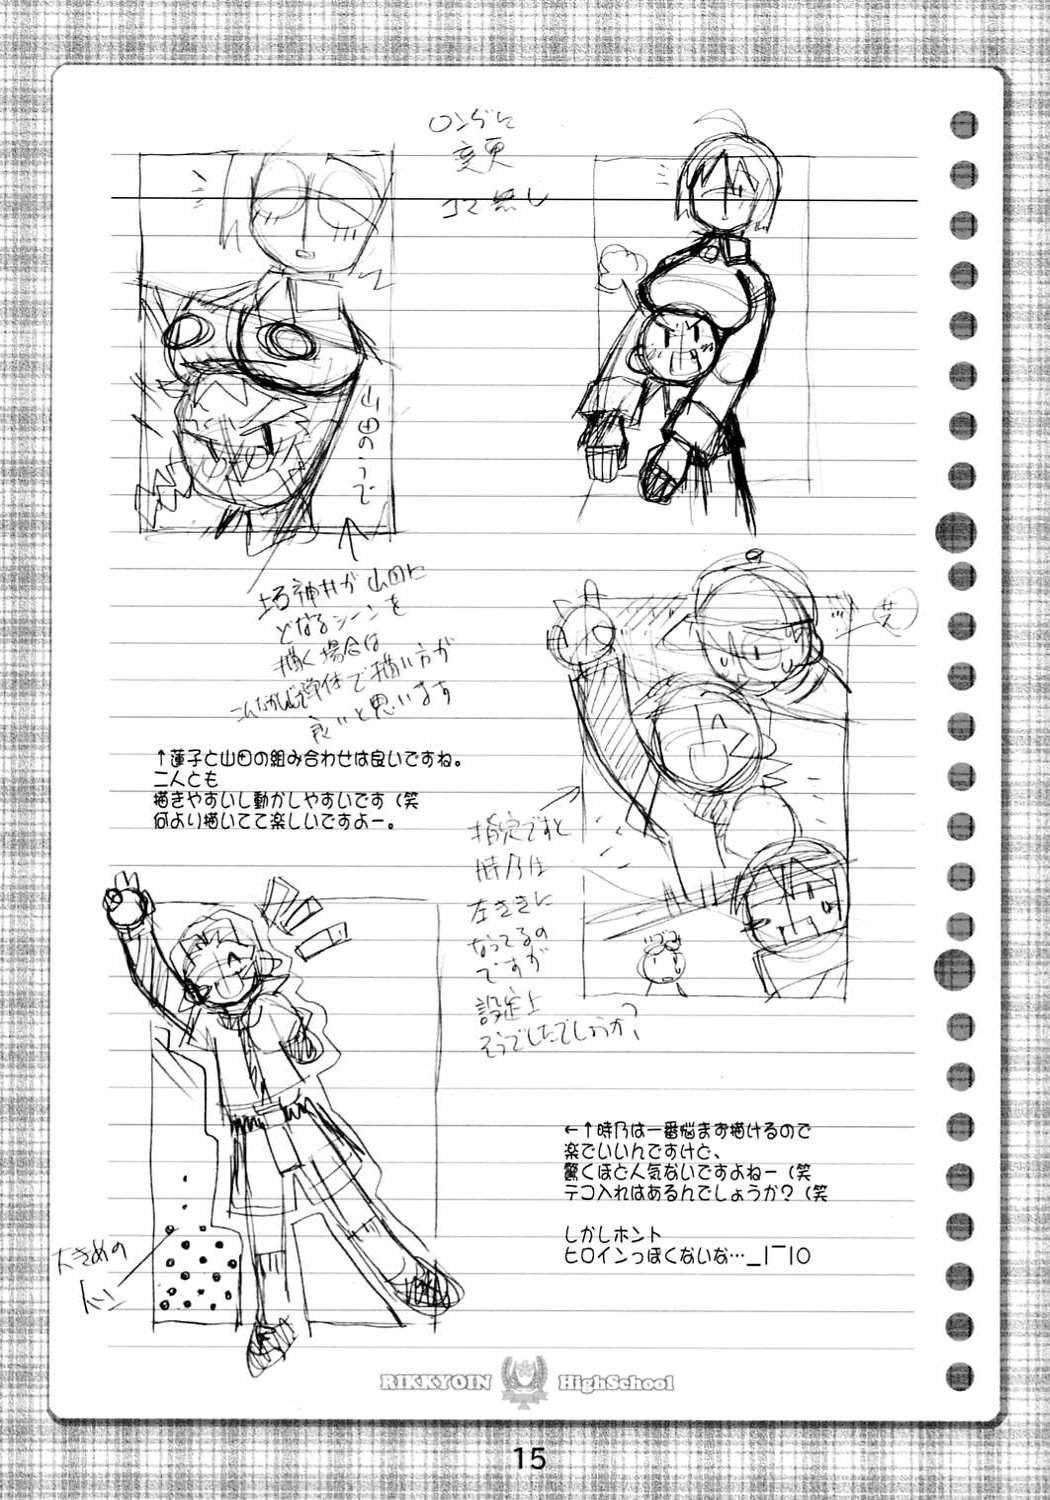 ロングに
変更
コマ無し
山田のうで
塙神井が山田に
どなるシーンを
描く場合は
で描い方が
良いと思います
↑蓮子と山田の組み合わせは良いですね。
二人とも
描きやすいし動かしやすいです（笑
何より描いてて楽しいですよー。
指定ですと
時乃は
左ききに
なってるの
ですが
設定上
そうでしたでしょうか？
←↑時乃は一番悩まず描けるので
楽でいいんですけど、
驚くほど人気ないですよねー（笑
テコ入れはあるんでしょうか？（笑
しかしホント
ヒロインっぽくないな…_|￣|○
大きめの
トーン
RIKKYOIN HighSchool
15